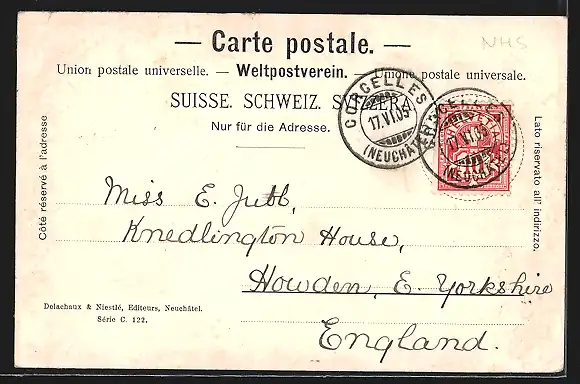 NHS
— Carte postale. —
Union postale universelle. — Weltpostverein. — Unione postale universale.
SUISSE. SCHWEIZ. SVIZZERA.
Nur für die Adresse.
CORCELLES
17.VI.05
(NEUCHÂTEL)
CORCELLES
17.VI.05
(NEUCHÂTEL)
10
Côté réservé à l'adresse
Lato riservato all' indirizzo.
Miss E. Jubb,
Knedlington House,
Howden, E. Yorkshire
England.
Delachaux & Niestlé, Editeurs, Neuchâtel.
Série C. 122.